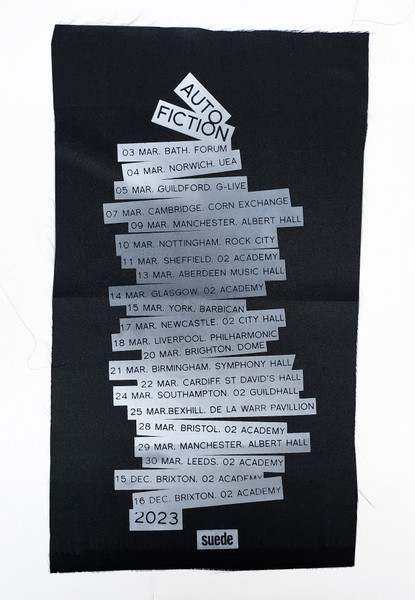 AUTO
FICTION
03 MAR. BATH. FORUM
04 MAR. NORWICH. UEA
05 MAR. GUILDFORD. G-LIVE
07 MAR. CAMBRIDGE. CORN EXCHANGE
09 MAR. MANCHESTER. ALBERT HALL
10 MAR. NOTTINGHAM. ROCK CITY
11 MAR. SHEFFIELD. 02 ACADEMY
13 MAR. ABERDEEN MUSIC HALL
14 MAR. GLASGOW. 02 ACADEMY
15 MAR. YORK. BARBICAN
17 MAR. NEWCASTLE. 02 CITY HALL
18 MAR. LIVERPOOL. PHILHARMONIC
20 MAR. BRIGHTON. DOME
21 MAR. BIRMINGHAM. SYMPHONY HALL
22 MAR. CARDIFF. ST DAVID'S HALL
24 MAR. SOUTHAMPTON. 02 GUILDHALL
25 MAR.BEXHILL. DE LA WARR PAVILLION
28 MAR. BRISTOL. 02 ACADEMY
29 MAR. MANCHESTER. ALBERT HALL
30 MAR. LEEDS. 02 ACADEMY
15 DEC. BRIXTON. 02 ACADEMY
16 DEC. BRIXTON. 02 ACADEMY
2023
suede